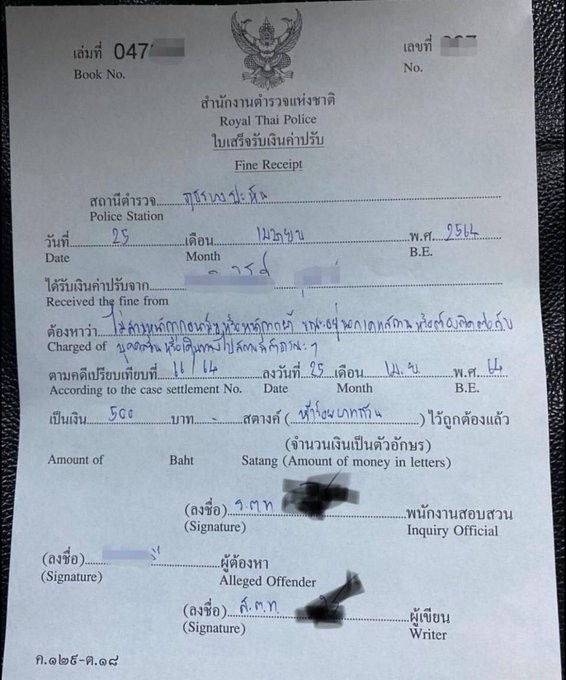 เล่มที่ 047
เลขที่
Book No.
No.
สำนักงานตำรวจแห่งชาติ
Royal Thai Police
ใบเสร็จรับเงินค่าปรับ
Fine Receipt
สถานีตำรวจ ภูธรบางปะหัน
Police Station
วันที่ 25 เดือน เมษายน พ.ศ. 2564
Date Month B.E.
ได้รับเงินค่าปรับจาก
Received the fine from
ต้องหาว่า ไม่สวมหน้ากากอนามัยหรือหน้ากากผ้า ขณะอยู่นอกเคหสถานหรือต้องติดต่อกับ
Charged of บุคคลอื่นหรือเดินทางไปสถานที่สาธารณะๆ
ตามคดีเปรียบเทียบที่ 11/64 ลงวันที่ 25 เดือน เม.ย พ.ศ. 64
According to the case settlement No. Date Month B.E.
เป็นเงิน 500 บาท - สตางค์ (ห้าร้อยบาทถ้วน) ไว้ถูกต้องแล้ว
(จำนวนเงินเป็นตัวอักษร)
Amount of Baht Satang (Amount of money in letters)
(ลงชื่อ) ร.ต.ท พนักงานสอบสวน
(Signature) Inquiry Official
(ลงชื่อ) ผู้ต้องหา
(Signature) Alleged Offender
(ลงชื่อ) ส.ต.ท. ผู้เขียน
(Signature) Writer
ค.๑๒๙-ต.๑๘